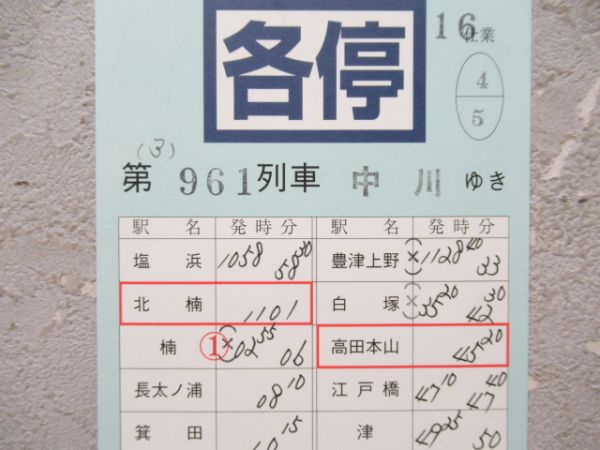 各停
16仕業
4
5
(3)
第 961 列車 中 川 ゆき
駅 名 発 時 分 駅 名 発 時 分
塩 浜 1058 58 30 豊津上野 (×) 1128 40 33
北 楠 1101 白 塚 (×) 35 20 42 30
楠 ① (×) 02 55 06 高田本山 45 20
長太ノ浦 08 10 江戸橋 47 10 47 40
箕 田 10 15 津 49 25 50